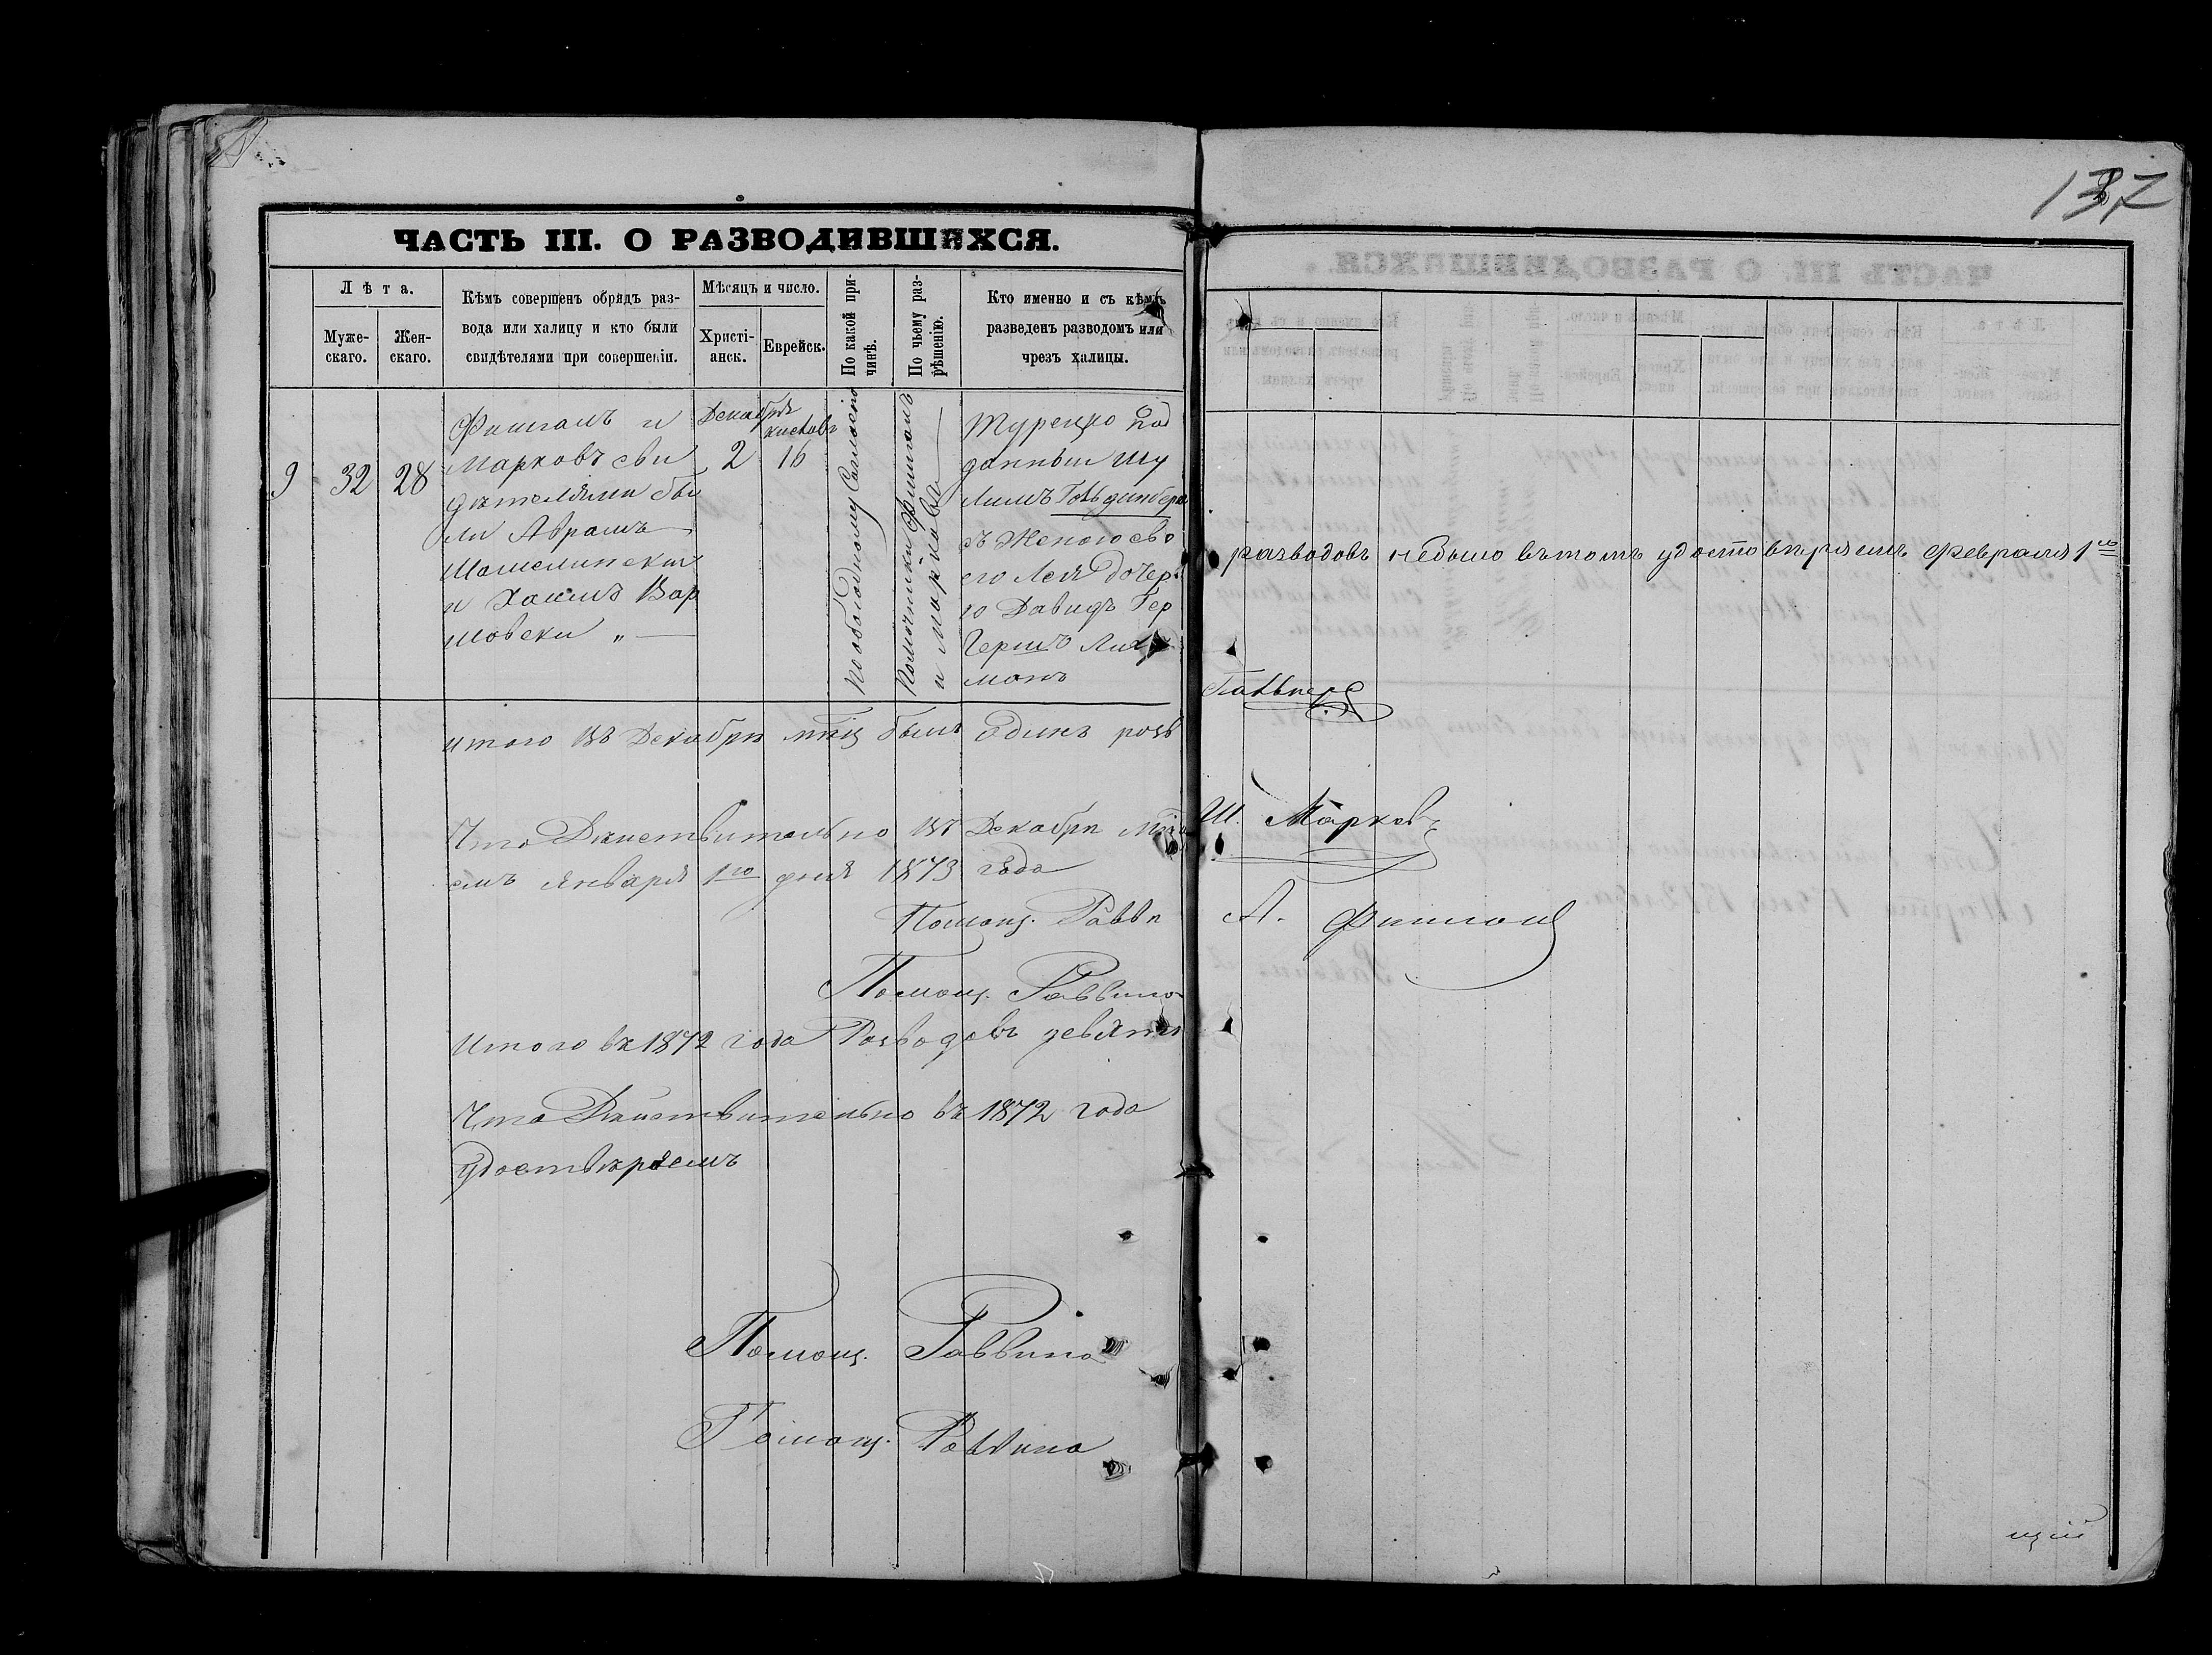 137
ЧАСТЬ III. О РАЗВОДИВШИХСЯ.
Лѣта.
Муже-
скаго.
Жен-
скаго.
Кѣмъ совершенъ обрядъ раз-
вода или халицу и кто были
свидѣтелями при совершеніи.
Мѣсяцъ и число.
Христі-
анск.
Еврейск.
По какой при-
чинѣ.
По чьему раз-
рѣшенію.
Кто именно и съ кѣмъ
разведенъ разводомъ или
чрезъ халицы.
9 32 28
Фишманъ и
Марковъ сви
дѣтелями бы
ли Абрамъ
и Хаимъ Вар
шовски „ —
Декабря
кислов
2 16
По обоюдному Согласію
Помочники Фишманъ
и Маркова
Турецко под
данный Шу
лимъ Гольдинберг
съ Женою сво
ею Лея дочер
ю Давидъ Гер
Герша
манъ
итого въ Декабря мѣц былъ одинъ розв
Что Дѣйствительно въ Декабря
емъ Января 1го дня 1873 года
Помощ. Равви
Помощ. Раввина
Итого въ 1872 года Розводовъ девять
Что Дѣйствительно въ 1872 года
удоствѣряемъ
Помощ. Раввина
Помощ. Раввина
разводовъ небыло въ томъ удостовѣряемъ Февраля 1го
Ш. Марковъ
А. Фишман
щій